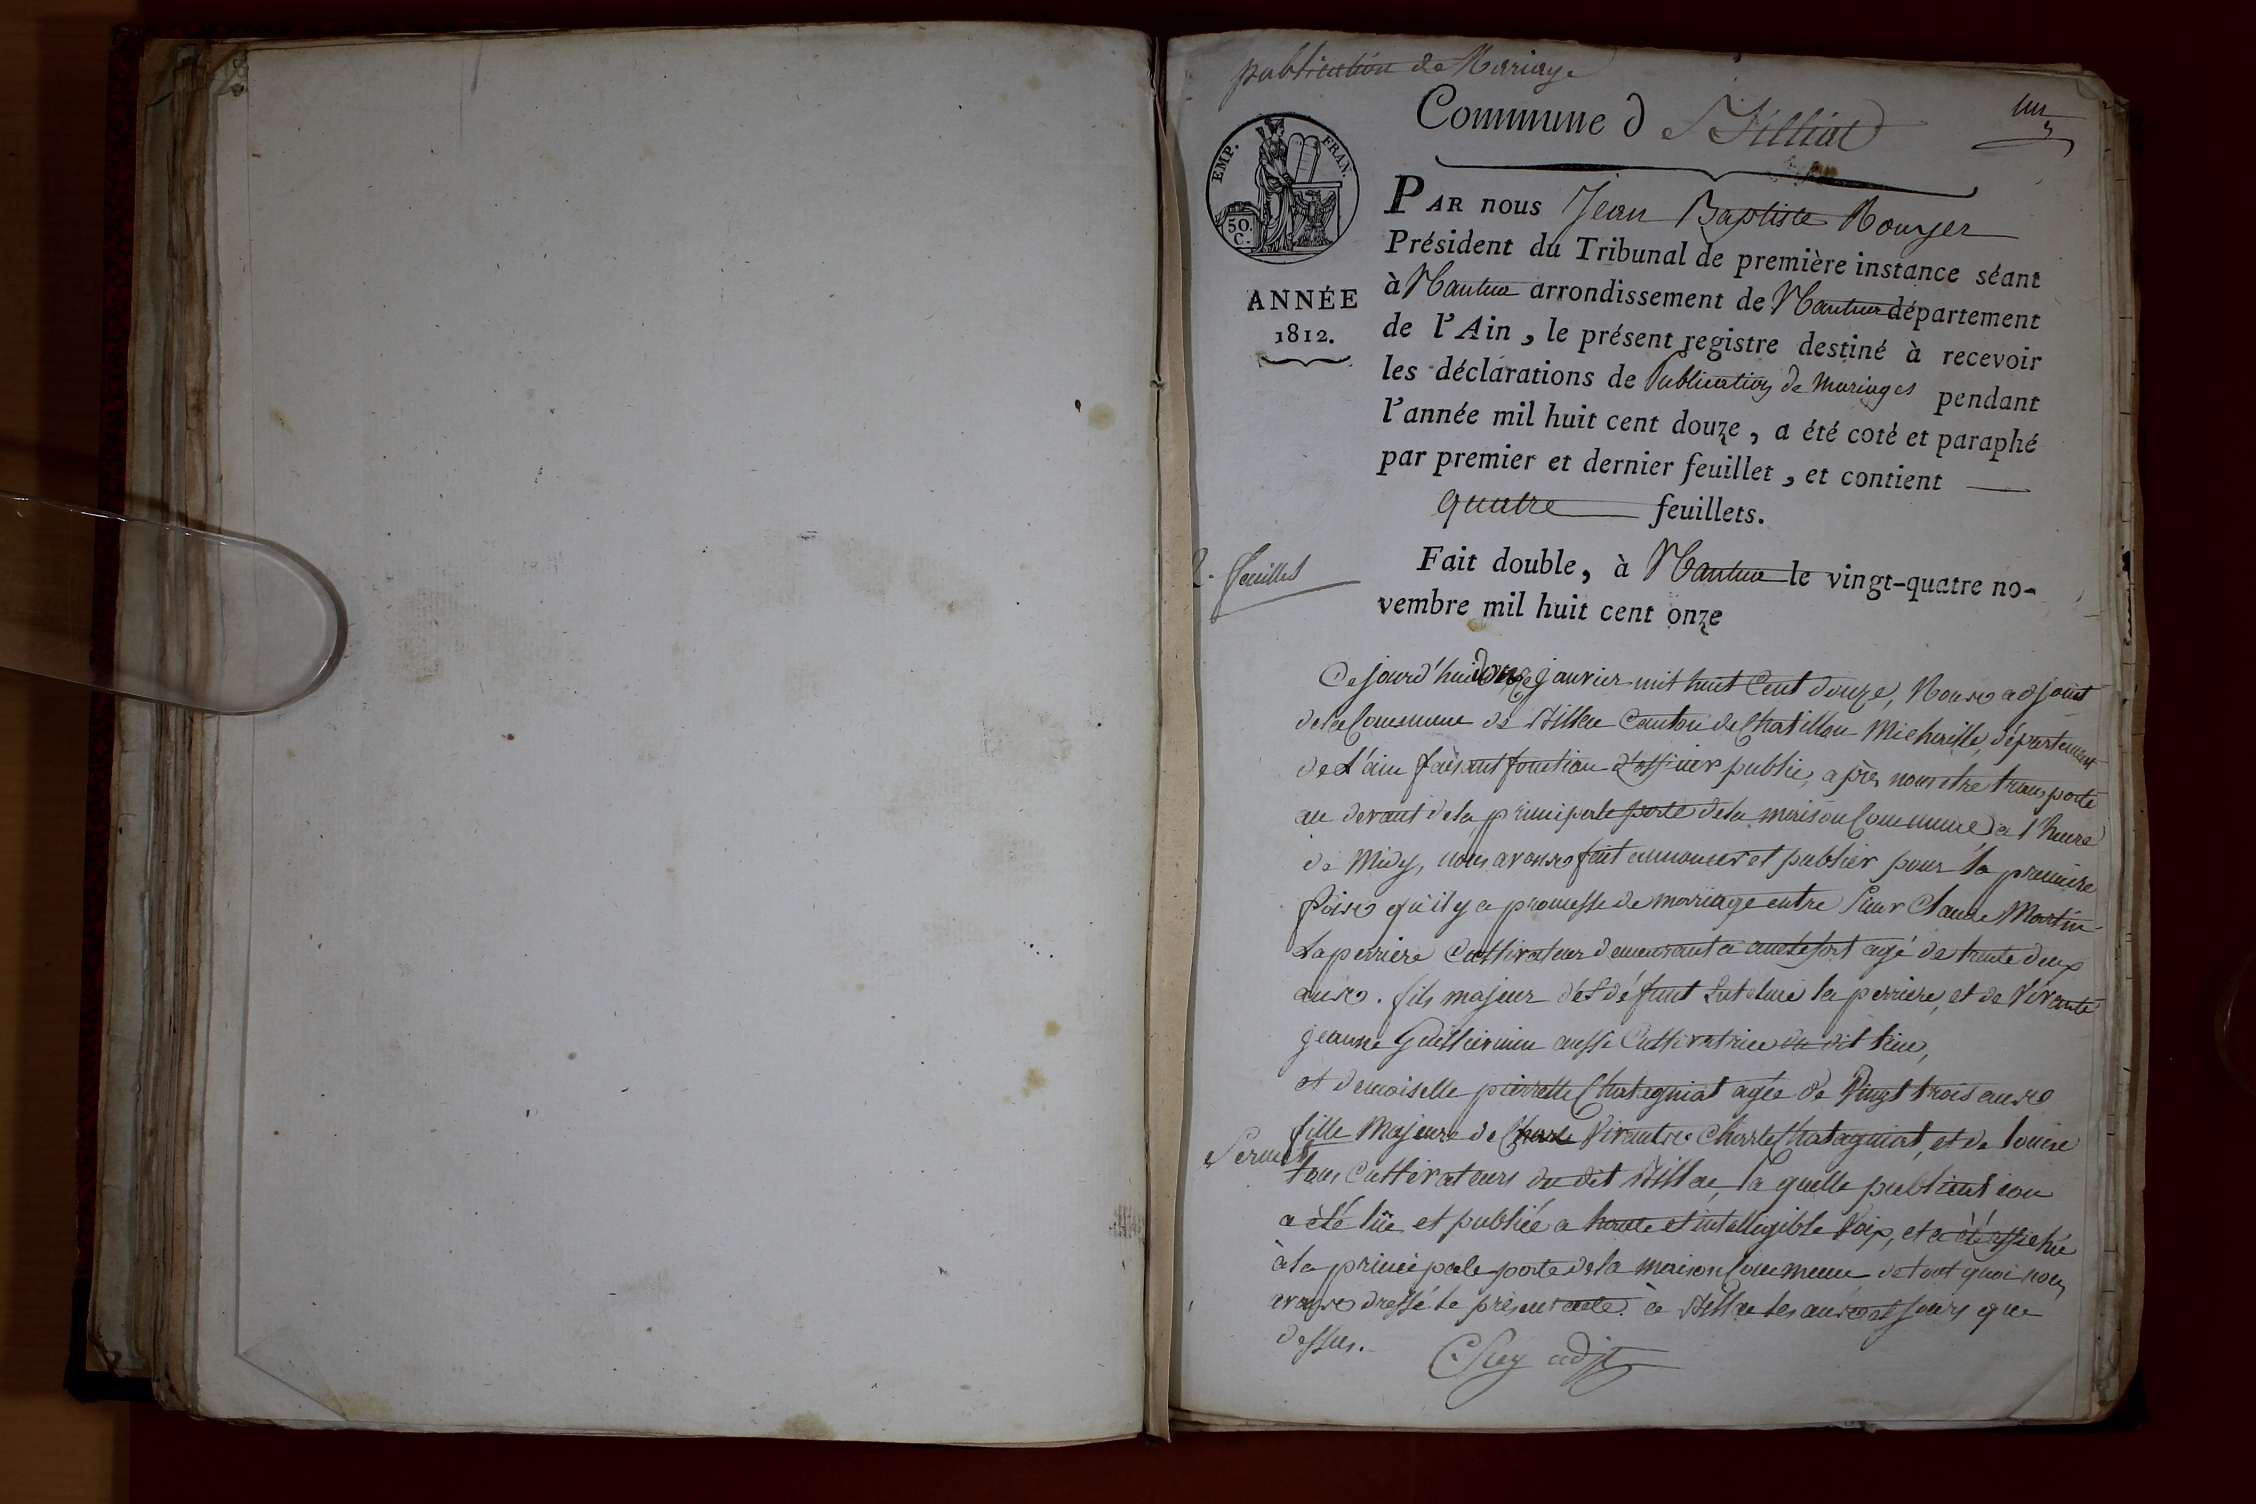 publication de Mariage
Commune d Silliat
un
EMP. FRAN.
50.
C.
ANNÉE
1812.
PAR nous Jean Baptiste Rouyer
Président du Tribunal de première instance séant
à Nantua arrondissement de Nantua département
de l'Ain, le présent registre destiné à recevoir
les déclarations de Publication de mariages pendant
l'année mil huit cent douze, a été coté et paraphé
par premier et dernier feuillet, et contient
quatre feuillets.
2. feuilles
Fait double, à Nantua le vingt-quatre no-
vembre mil huit cent onze
Ce jourd'hui douze janvier mil huit Cent douze, Nous adjoint
de la Commune de Billia Canton de Chatillon Michaille, département
de L'ain faisant fonction d'officier public, après nous etre transporté
au devant de la principale porte de la maison Commune a l'heure
de Midy, nous avons fait annoncer et publier pour la premiere
fois qu'il y a promesse de mariage entre Sieur Claude Martin
Laperriere Cultivateur demeurant a age de trente deux
ans. fils majeur de défunt la perriere, et de Vivante
jeanne Guilliermin aussi Cultivatrice du dit lieu,
et demoiselle pierrette Chatagniat agée de Vingt trois ans
fille Majeure de Charle Vivants Charle Chatagniat, et de louise
tous Cultivateurs du dit Billia, la quelle publication
a été lüe et publiée a haute et intelligible Voix, et a été affichée
à la principale porte de la maison Commune de tout quoi nous
avons dressé le présent acte. à Billia les ans et jours que
dessus.
adjt